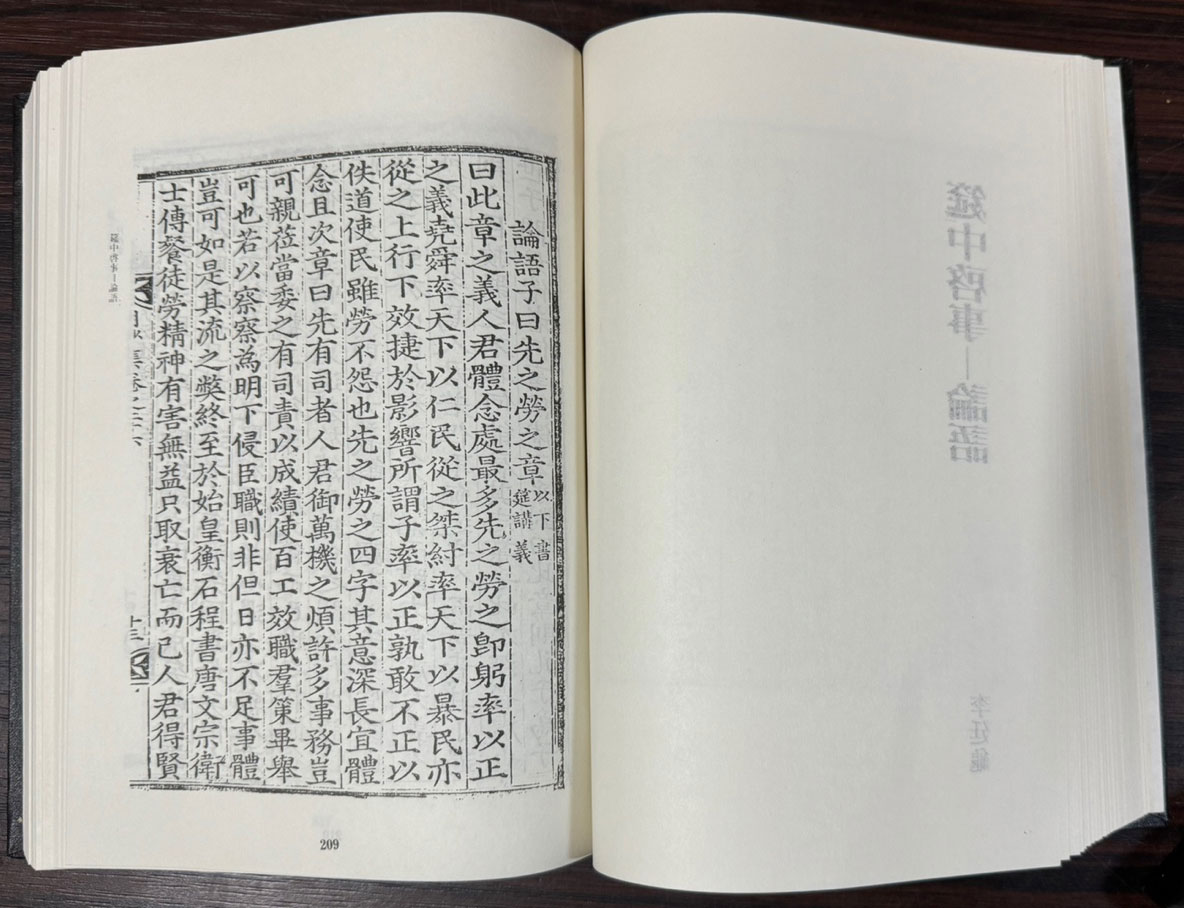 論語子曰先之勞之章以下書筵講義
曰此章之義人君體念處最多先之勞之卽躬率以正
之義堯舜率天下以仁民從之桀紂率天下以暴民亦
從之上行下效捷於影響所謂子率以正孰敢不正以
佚道使民雖勞不怨也先之勞之四字其意深長宜體
念且次章曰先有司者人君御萬機之煩許多事務豈
可親莅當委之有司責以成績使百工效職羣策畢舉
可也若以察察爲明下侵臣職則非但日亦不足事體
豈可如是其流之弊終至於始皇衡石程書唐文宗衛
士傳餐徒勞精神有害無益只取衰亡而已人君得賢
十三
筵中啓事─論語
209
筵中啓事─論語
李廷龜